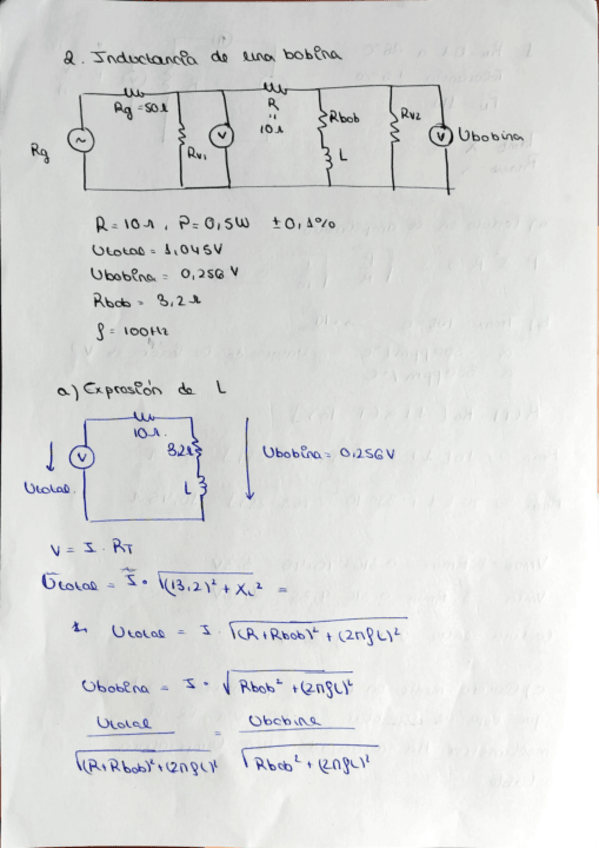 2. Inductancia de una bobina
Rg = 50Ω
R = 10Ω
Rbob
RV2
Rg
~
RV1
V
L
V
Ubobina
R = 10Ω, P = 0,5W ± 0,1%
Utotal = 1,045V
Ubobina = 0,256 V
Rbob = 3,2Ω
f = 100Hz
a) Expresión de L
10Ω
V
3,2Ω
L
Utotal
Ubobina = 0,256V
V = I · RT
Utotal = I · √((13,2)² + XL²) =
Utotal = I · √((R+Rbob)² + (2πfL)²)
Ubobina = I · √(Rbob² + (2πfL)²)
Utotal / √((R+Rbob)² + (2πfL)²) = Ubobina / √(Rbob² + (2πfL)²)